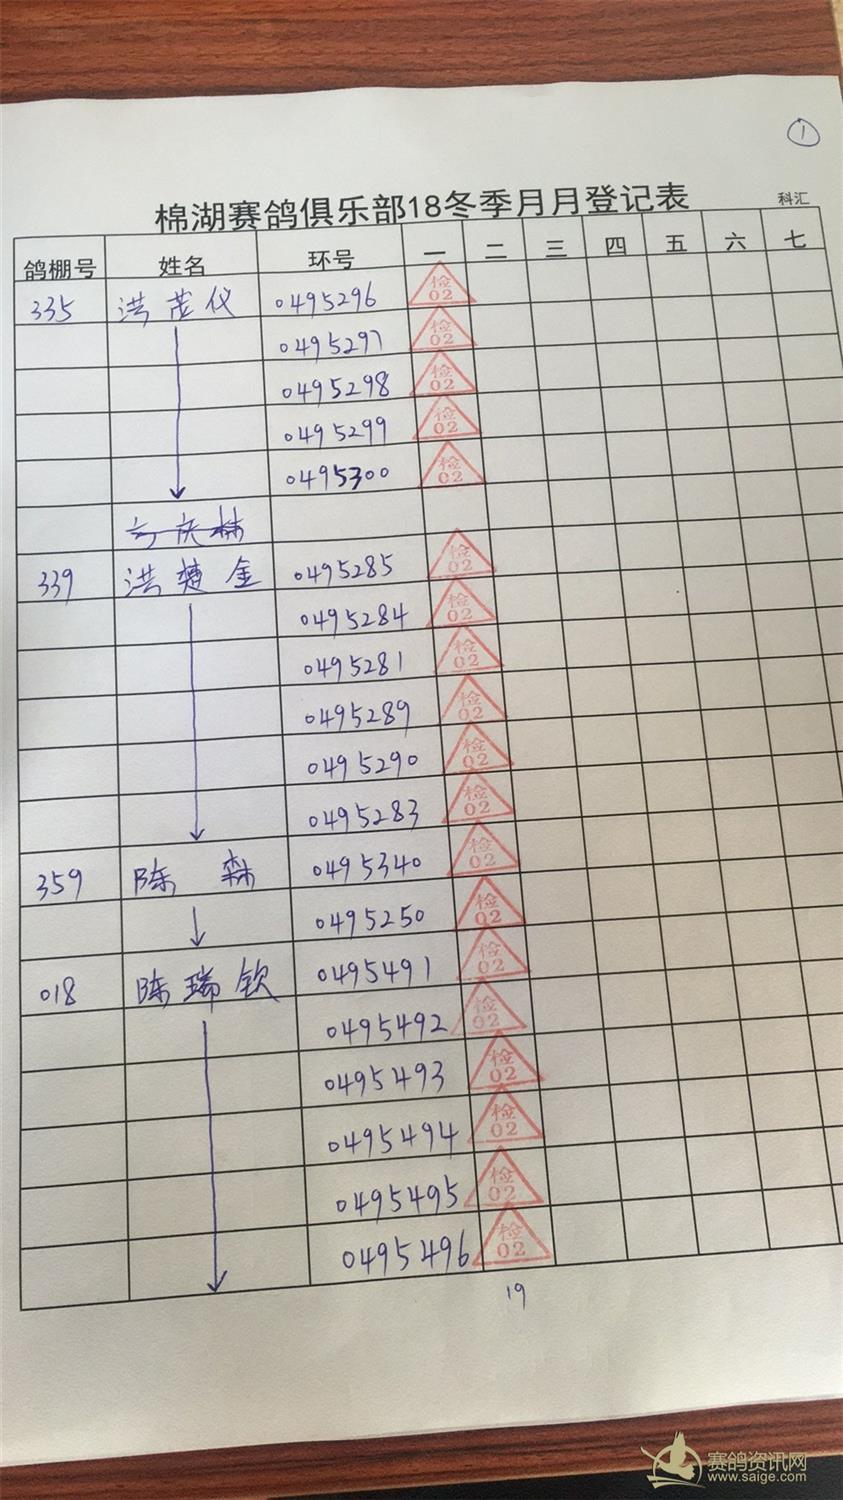 ①
棉湖赛鸽俱乐部18冬季月月登记表 科汇
鸽棚号 姓名 环号 一 二 三 四 五 六 七
335 洪莹仪 0495296 检02
0495297 检02
0495298 检02
0495299 检02
0495300 检02
339 洪楚金 0495285 检02
0495284 检02
0495281 检02
0495289 检02
0495290 检02
0495283 检02
359 陈森 0495340 检02
0495250 检02
018 陈瑞钦 0495491 检02
0495492 检02
0495493 检02
0495494 检02
0495495 检02
0495496 检02
19
赛鸽资讯网
www.saige.com